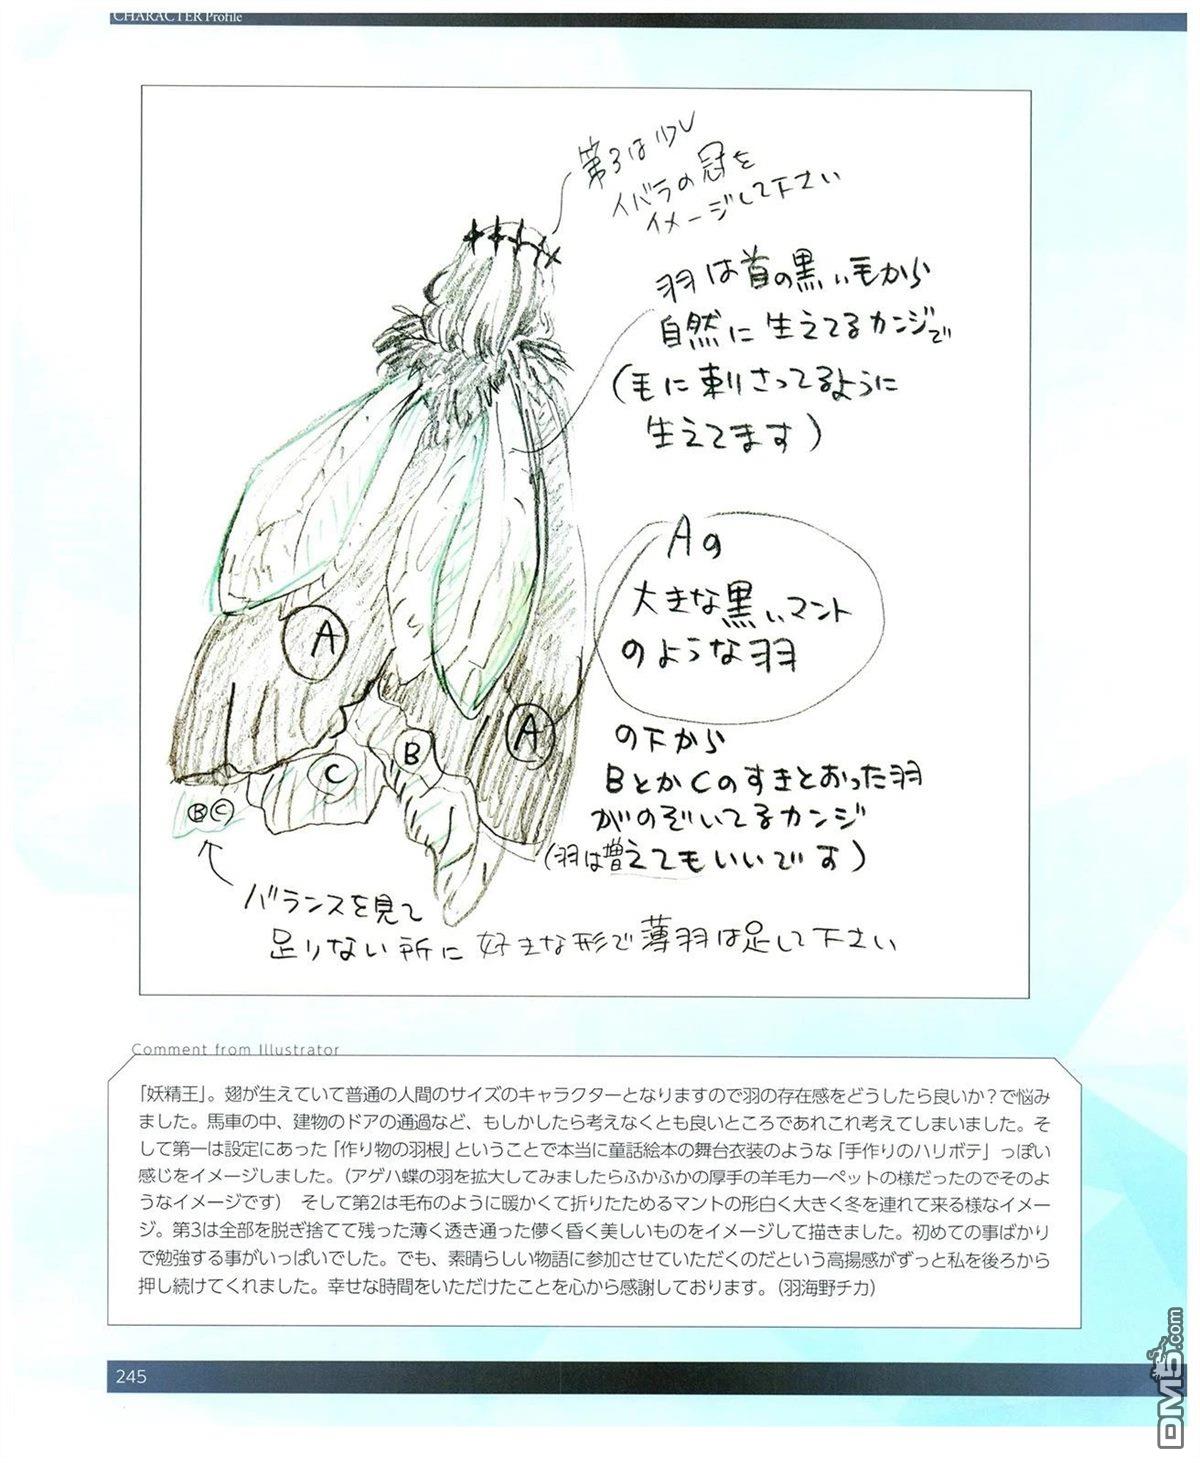 CHARACTER Profile
第3は少し
イバラの冠を
イメージして下さい
羽は首の黒い毛から
自然に生えてるカンジで
(毛に刺さってるように
生えてます)
Aの
大きな黒いマント
のような羽
A
A
B
C
BC
の下から
BとかCのすきとおった羽
がのぞいてるカンジ
(羽は増えてもいいです)
バランスを見て
足りない所に好きな形で薄羽は足して下さい
Comment from Illustrator
「妖精王」。翅が生えていて普通の人間のサイズのキャラクターとなりますので羽の存在感をどうしたら良いか？で悩み
ました。馬車の中、建物のドアの通過など、もしかしたら考えなくとも良いところであれこれ考えてしまいました。そ
して第一は設定にあった「作り物の羽根」ということで本当に童話絵本の舞台衣装のような「手作りのハリボテ」っぽい
感じをイメージしました。（アゲハ蝶の羽を拡大してみましたらふかふかの厚手の羊毛カーペットの様だったのでそのよ
うなイメージです）　そして第2は毛布のように暖かくて折りたためるマントの形白く大きく冬を連れて来る様なイメー
ジ。第3は全部を脱ぎ捨てて残った薄く透き通った儚く昏く美しいものをイメージして描きました。初めての事ばかり
で勉強する事がいっぱいでした。でも、素晴らしい物語に参加させていただくのだという高揚感がずっと私を後ろから
押し続けてくれました。幸せな時間をいただけたことを心から感謝しております。（羽海野チカ）
245
DM5.com